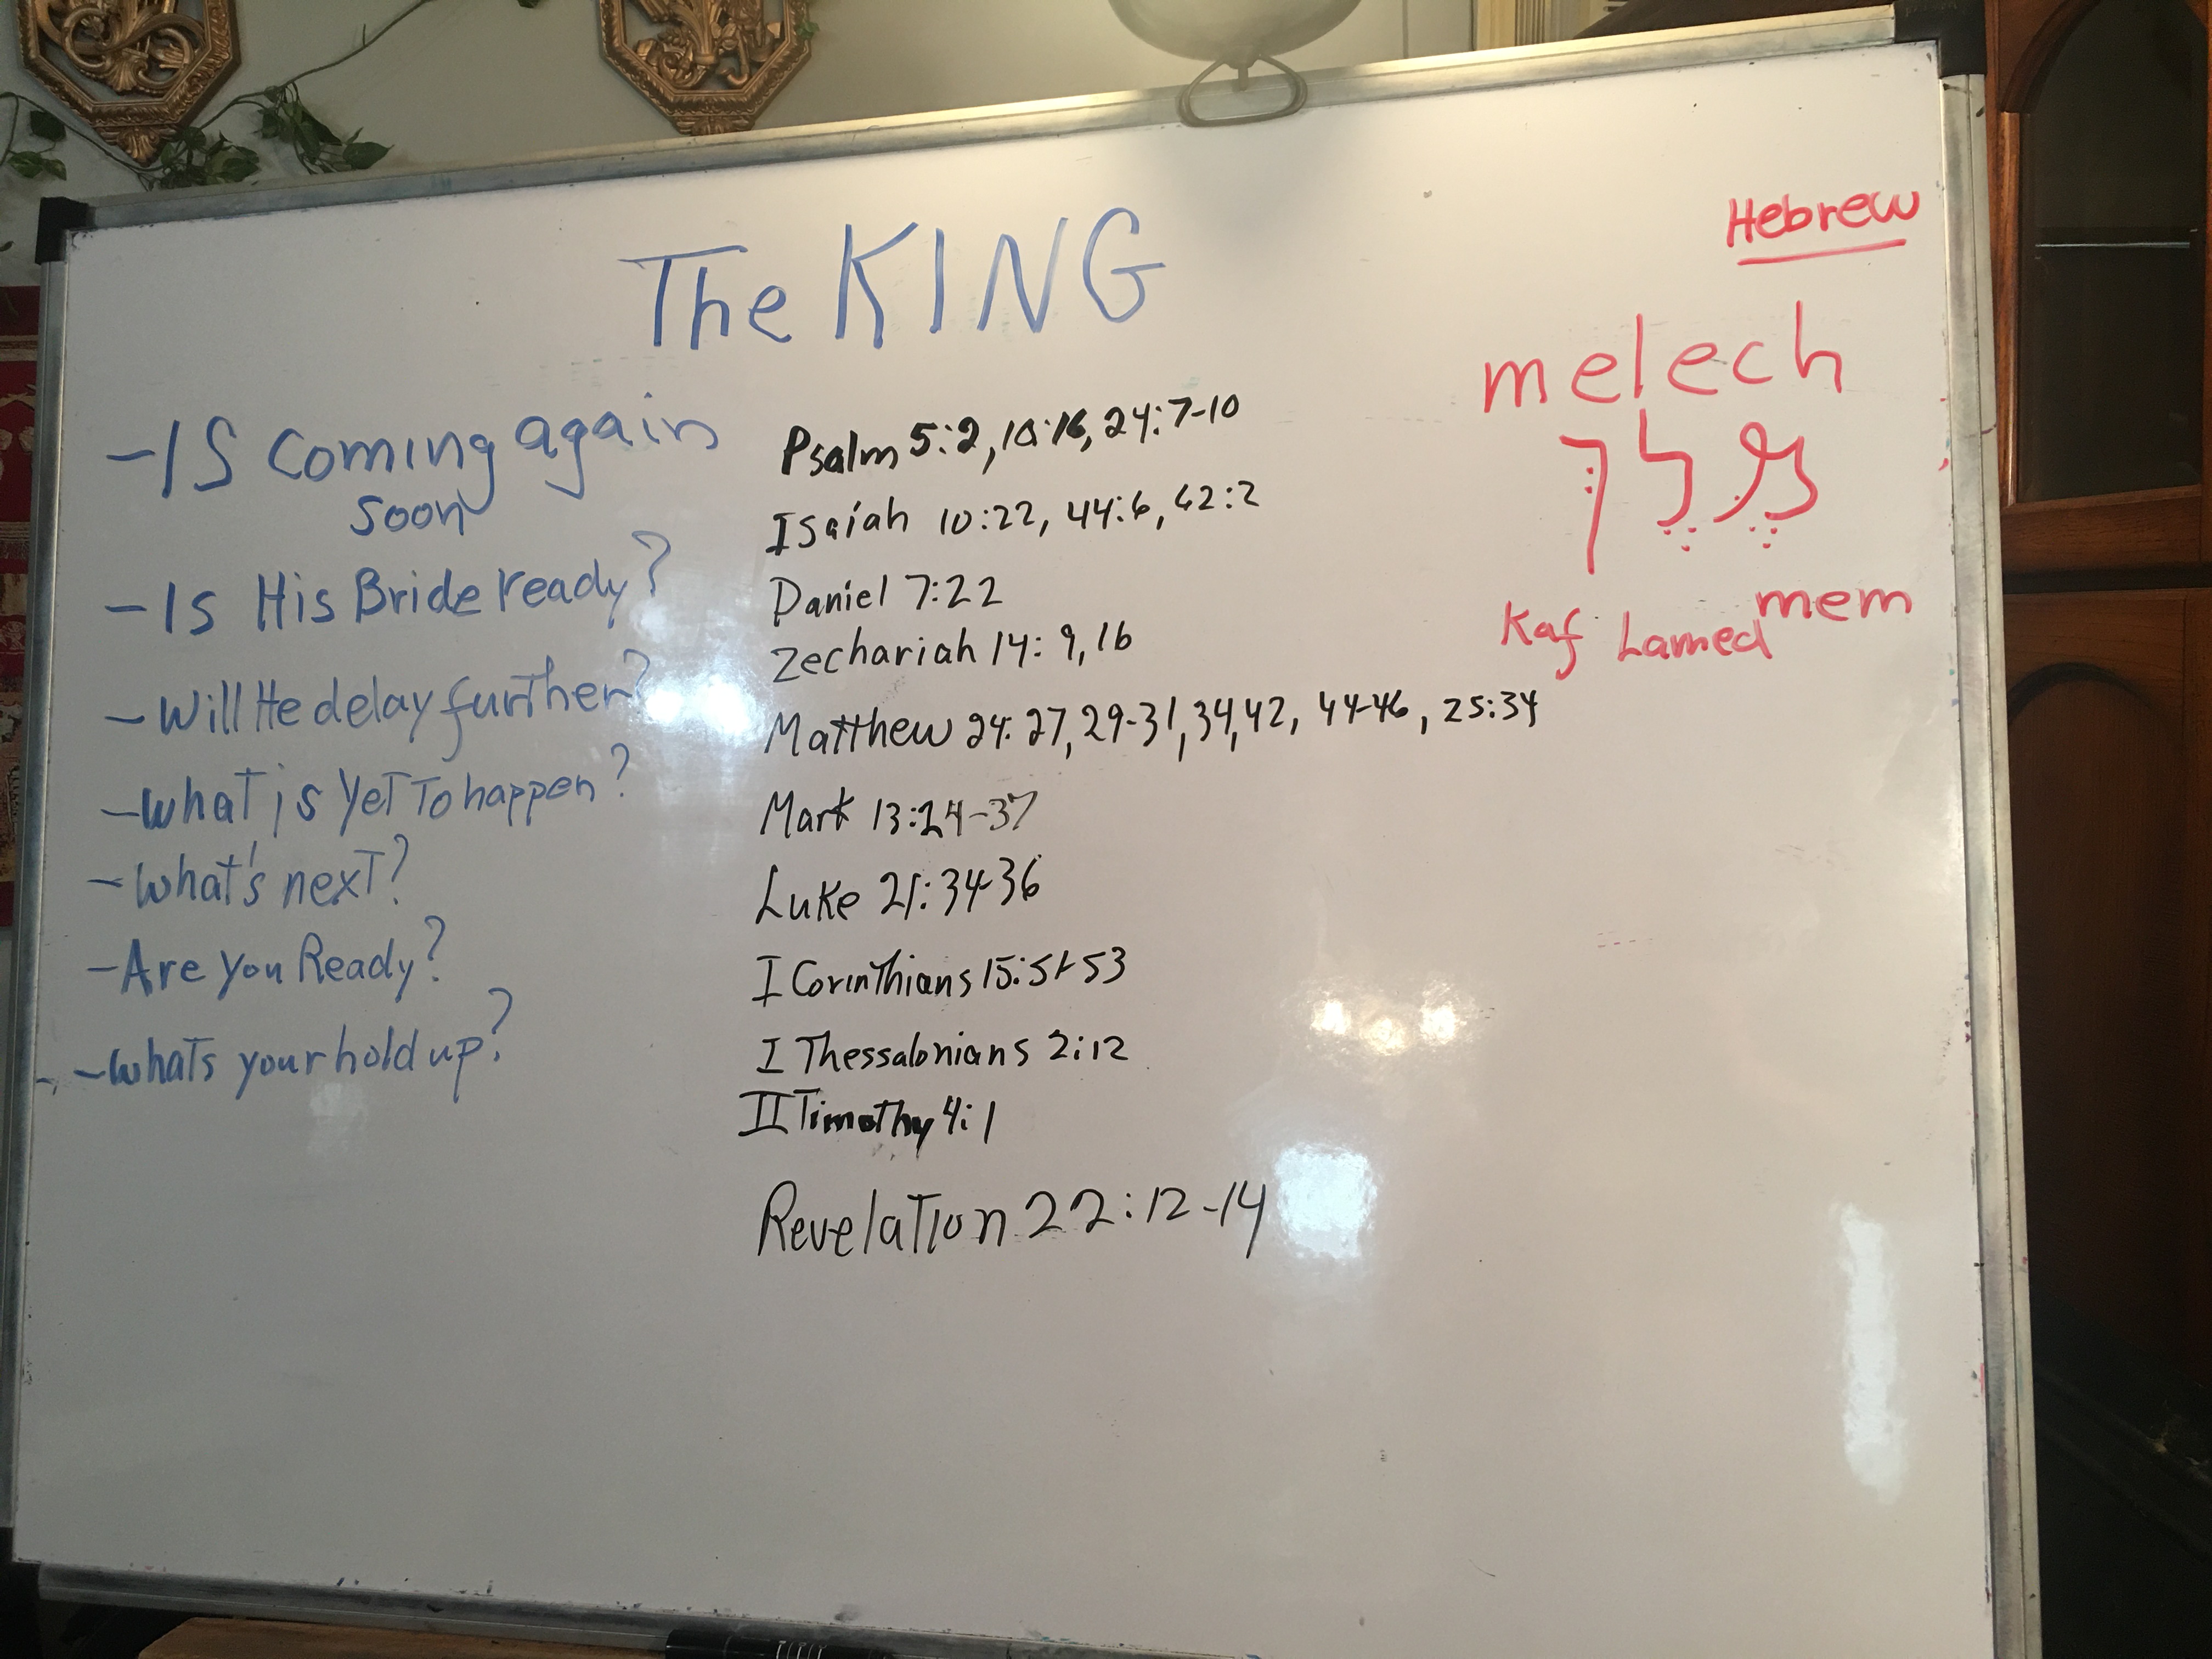 The KING
-IS coming again
soon
-Is His Bride ready?
-Will He delay further?
-What is YeT To happen?
-What's nexT?
-Are you Ready?
-whaTs your hold up?
Psalm 5:2, 10:16, 24:7-10
Isaiah 10:22, 44:6, 62:2
Daniel 7:22
Zechariah 14: 9, 16
Matthew 24: 27, 29-31, 34, 42, 44-46, 25:34
Mark 13:24-37
Luke 21:34-36
I Corinthians 15:51-53
I Thessalonians 2:12
II Timothy 4:1
Revelation 22:12-14
Hebrew
melech
מֶלֶךְ
Kaf Lamed mem